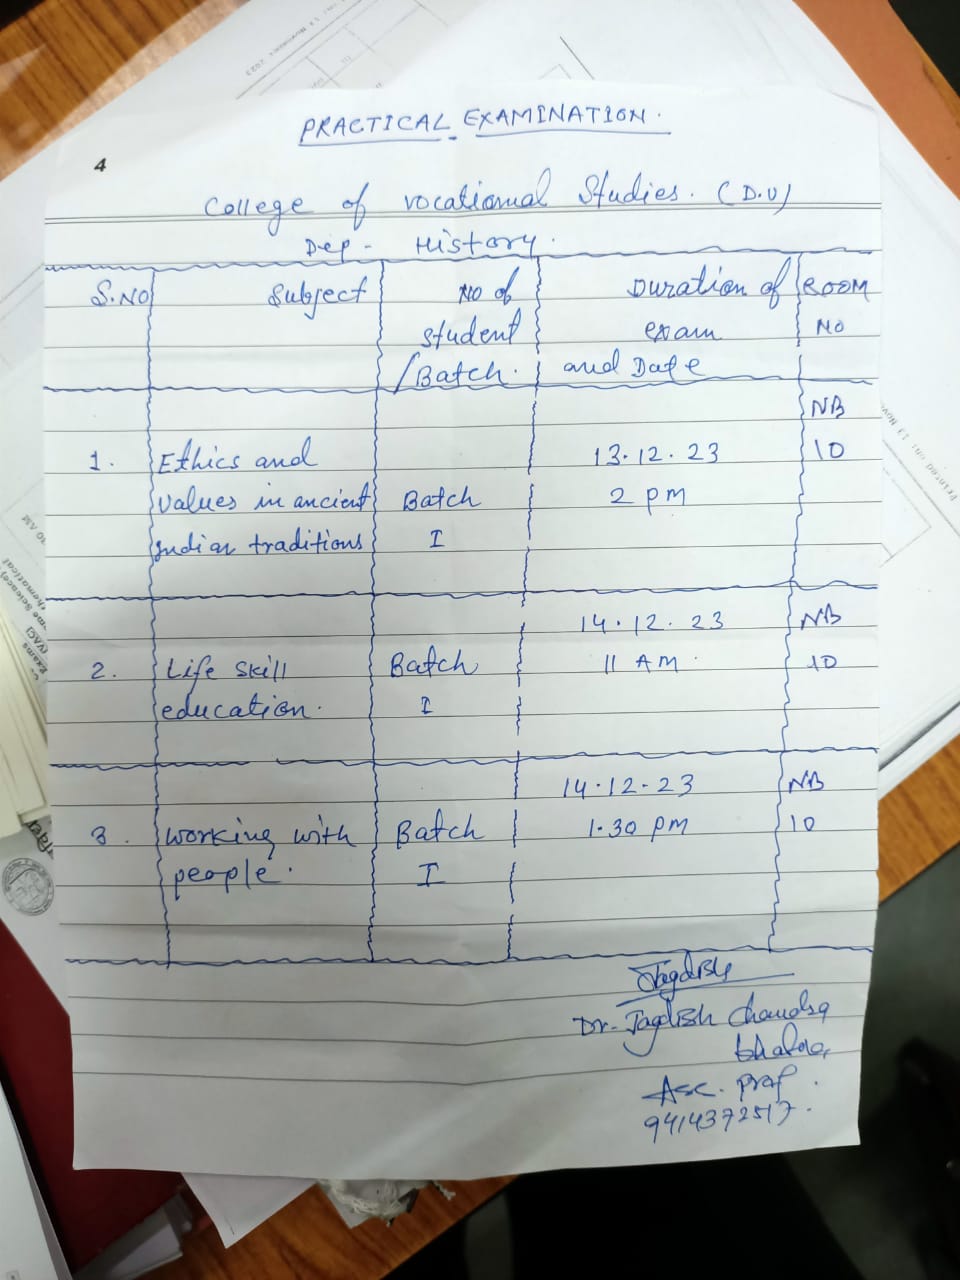 PRACTICAL EXAMINATION.
4
College of vocational Studies. (D.U)
Dep - History.
S.NO Subject NO of student /Batch. Duration of exam and Date ROOM NO
1. Ethics and values in ancient Indian traditions Batch I 13.12.23 2 pm NB 10
2. Life skill education. Batch I 14.12.23 11 AM. NB 10
3. working with people. Batch I 14.12.23 1.30 pm NB 10
Jagdish
Dr. Jagdish Chandra
Asc. prof.
9414372517.